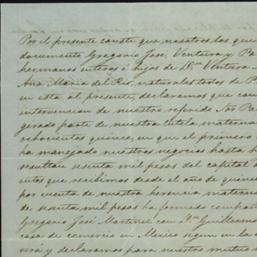 Por el presente conste que nosotros los que
documento Gregorio José, Ventura y Pa
hermanos enteros é hijos de Dn Ventura
Ana Maria del Rio, naturales todos de P
en esta al presente, declaramos que con
intervencion de nuestro referido Sor Pa
gerado parte de nuestra tutela materna
ochocientos quince, en que el primero
ha manejado nuestros negocios hasta
resultan noventa mil pesos del capital
entos que recibimos desde el año de quince
por cuenta de nuestra herencia materna
de noventa mil pesos ha formado compañ
Gregorio José Martinez con Dn Guillermo
casa de comercio en Mexico segun en la
verá y declaramos para nuestro mutuo